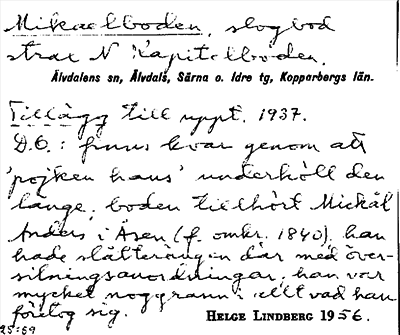 Mikaelboden, slogbod
strax N Kapitelboden.
Älvdalens sn, Älvdals, Särna o. Idre tg, Kopparbergs län.
Tillägg till uppt. 1937.
D.O.: finns kvar genom att
'pojken hans' underhöll den
länge; boden tillhört Mickäl
Anders i Åsen (f. omkr. 1840), han
hade slåtterängen där med över-
silningsanordningar; han var
mycket noggrann i allt vad han
företog sig. HELGE LINDBERG 1956.
25:69